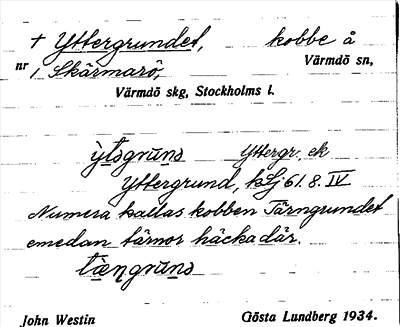 † Yttergrundet, kobbe å
nr 1 Skärmarö, Värmdö sn,
Värmdö skg, Stockholms l.
ỳtsgrùns Yttergr. ek
Yttergrund, kLj 61. 8. IV
Numera kallas kobben Tärngrundet
emedan tärnor häcka där.
tæ̀ŋgruns
John Westin Gösta Lundberg 1934.